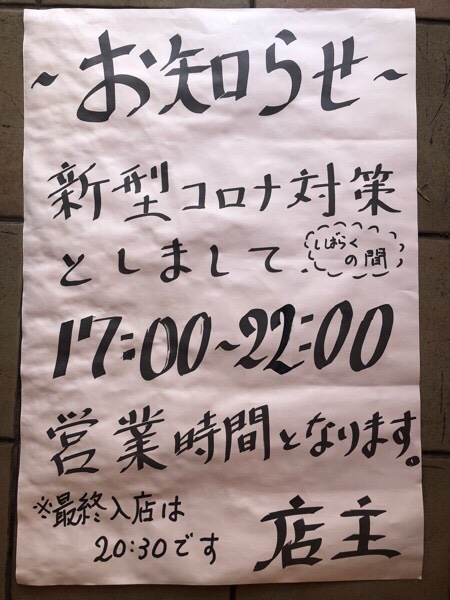 ~お知らせ~
新型コロナ対策
としまして しばらくの間
17:00~22:00
営業時間となります。
※最終入店は
20:30です
店主